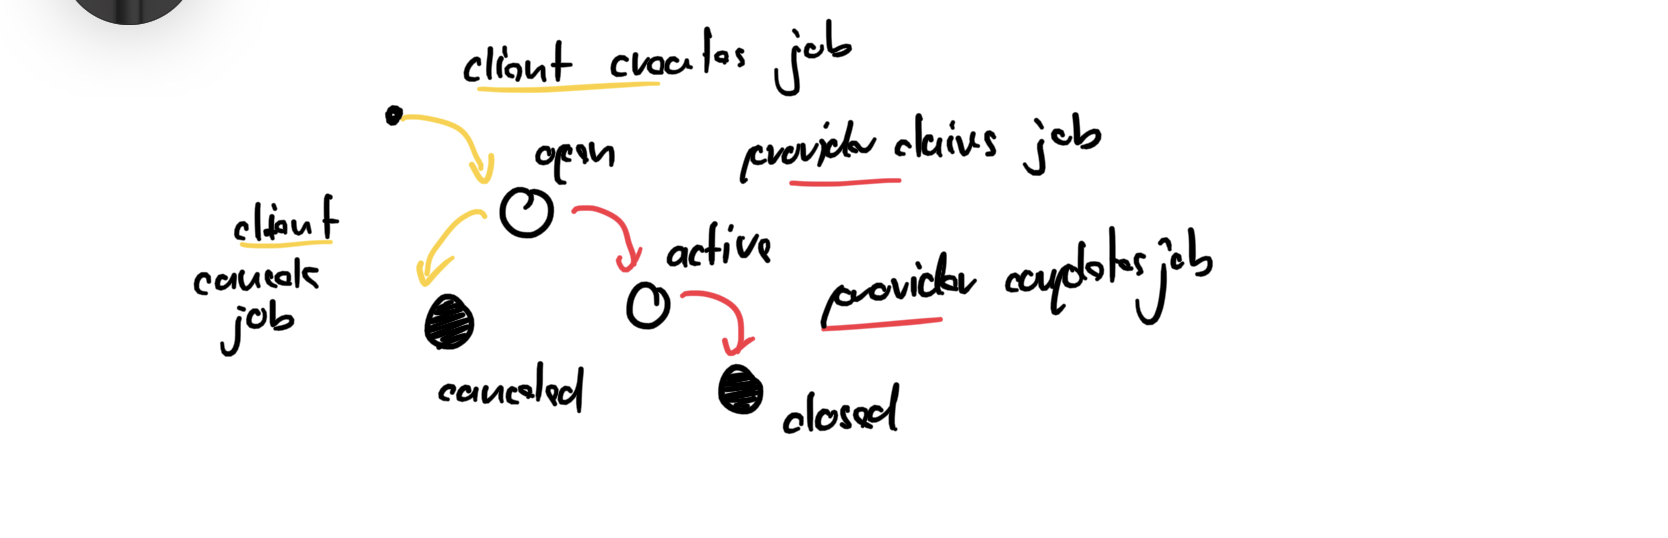 client creates job
open
provider claims job
client
cancels
job
active
provider completes job
canceled
closed